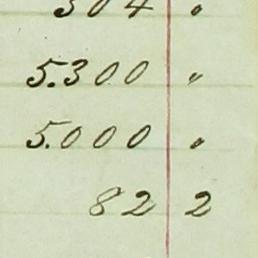 304 "
5.300 "
5.000 "
82 2